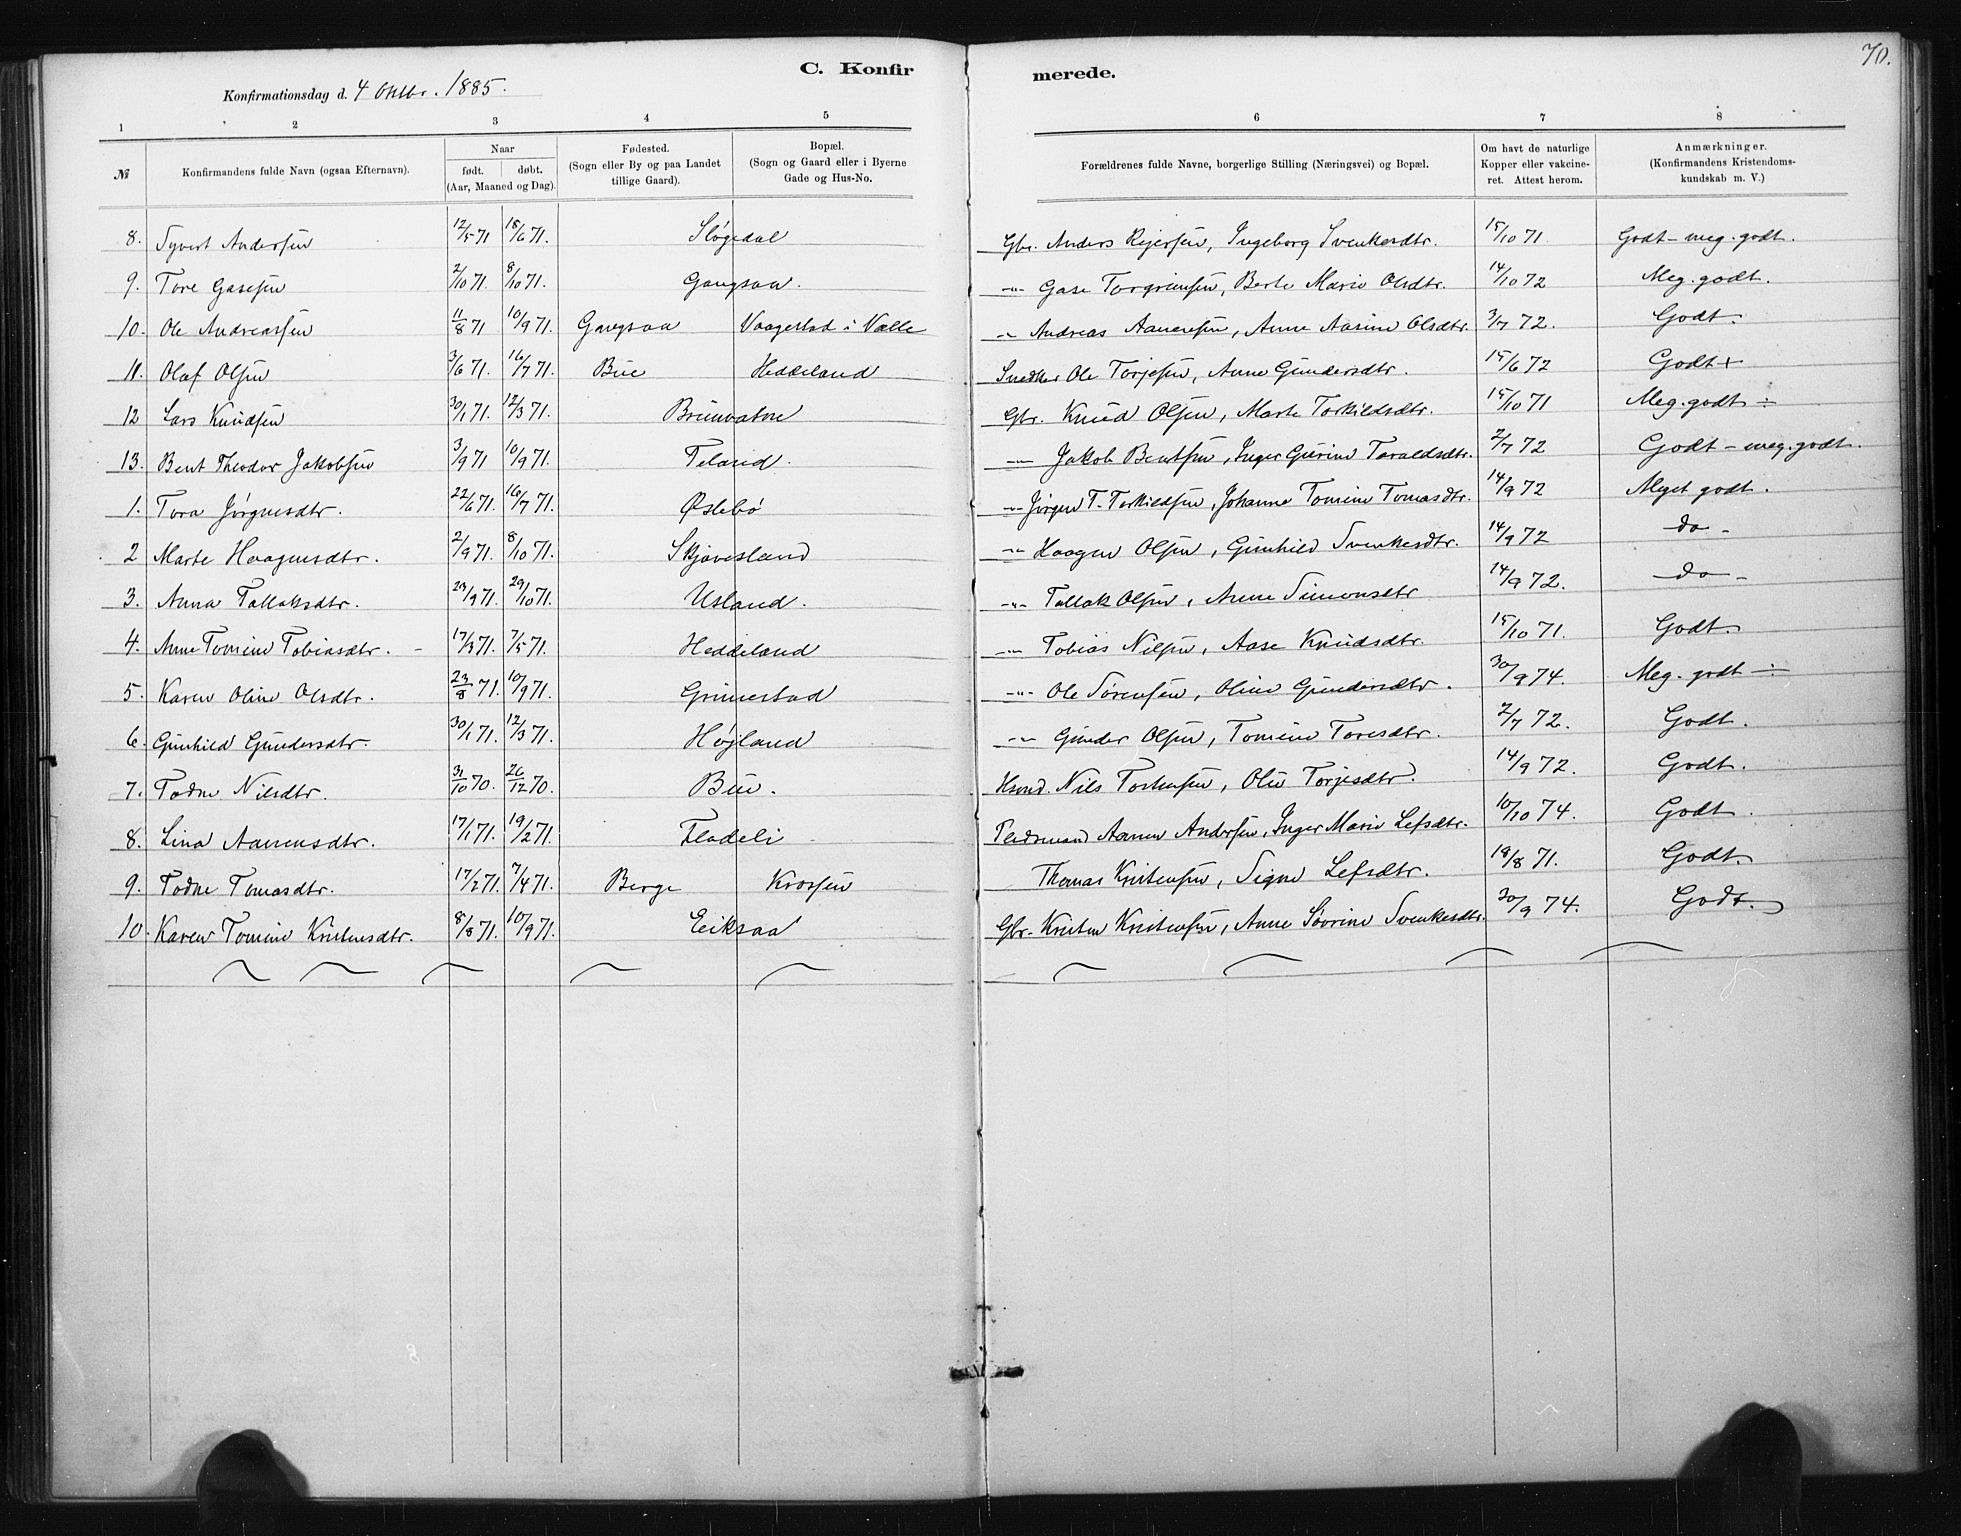 70.
C. Konfirmerede.
Konfirmationsdag d. 4 Oktbr. 1885.
1 2 3 4 5 6 7 8
№ Konfirmandens fulde Navn (ogsaa Efternavn). Naar født. døbt. (Aar, Maaned og Dag). Fødested. (Sogn eller By og paa Landet tillige Gaard). Bopæl. (Sogn og Gaard eller i Byerne Gade og Hus-No. Forældrenes fulde Navne, borgerlige Stilling (Næringsvei) og Bopæl. Om havt de naturlige Kopper eller vakcineret. Attest herom. Anmærkninger. (Konfirmandens Kristendomskundskab m. V.)
8. Syvert Andersen 12/5 71 18/6 71. Sløgedal Gbr. Anders Rejersen, Ingeborg Svenkesdtr. 15/10 71. Godt - meg. godt.
9. Tore Gasesen 2/10 71. 8/10 71. Gangsaa. -"- Gase Torgrimsen, Berte Marie Olsdtr. 14/10 72 Meg. godt.
10. Ole Andreassen 11/8 71 10/9 71. Gangsaa Vaagestad i Vælle -"- Andreas Aanensen, Anne Aasine Olsdtr. 3/7 72. Godt.
11. Olaf Olsen 3/6 71. 16/7 71. Bue Heddeland Snedker Ole Torjesen, Anne Gundersdtr. 15/6 72 Godt +
12 Lars Knudsen 30/1 71. 12/3 71. Brunvatne Gbr. Knud Olsen, Marte Torkildsdtr. 15/10 71 Meg. godt ÷
13. Bent Theodor Jakobsen 3/9 71 10/9 71. Feland. -"- Jakob Bentsen, Inger Gurine Taraldsdtr. 2/7 72 Godt - meg. godt.
1. Tora Jørgensdtr. 22/6 71. 16/7 71. Øslebø -"- Jørgen T. Torkildsen, Johanne Tomine Tomasdtr. 14/9 72 Meget godt.
2 Marte Haagensdtr. 2/9 71. 8/10 71. Skjævesland -"- Haagen Olsen, Gunhild Svenkesdtr. 14/9 72 do -
3. Anna Tallaksdtr. 23/9 71. 29/10 71. Usland. -"- Tallak Olsen, Anne Simonsdtr 14/9 72. do -
4. Anne Tomine Tobiasdtr. - 17/3 71. 7/5 71. Heddeland -"- Tobias Nilsen, Aase Knudsdtr. 15/10 71. Godt.
5. Karen Oline Olsdtr. 23/8 71. 10/9 71. Grimestad -"- Ole Sørensen, Oline Gundersdtr. 30/9 74. Meg. godt ÷
6. Gunhild Gundersdtr. 30/1 71. 12/3 71. Højland -"- Gunder Olsen, Tomine Toresdtr. 2/7 72. Godt.
7. Todne Nilsdtr. 31/10 70. 26/12 70. Bue. Husmd. Nils Torkelsen, Olu Torjesdtr. 14/9 72. Godt.
8. Lina Aanensdtr. 17/1 71. 19/2 71. Fladeli Pladsmand Aanen Andersen, Inger Marie Lefsdtr. 10/10 74. Godt.
9. Todne Tomasdtr. 17/2 71. 7/4 71. Berge Krossen Thomas Kristensen, Signe Lefsdtr. 18/8 71. Godt.
10. Karen Tomine Kristensdtr. 8/8 71. 10/9 71. Eiksaa Gbr. Kristen Kristensen, Anne Sovrine Svenkesdtr. 30/9 74. Godt.